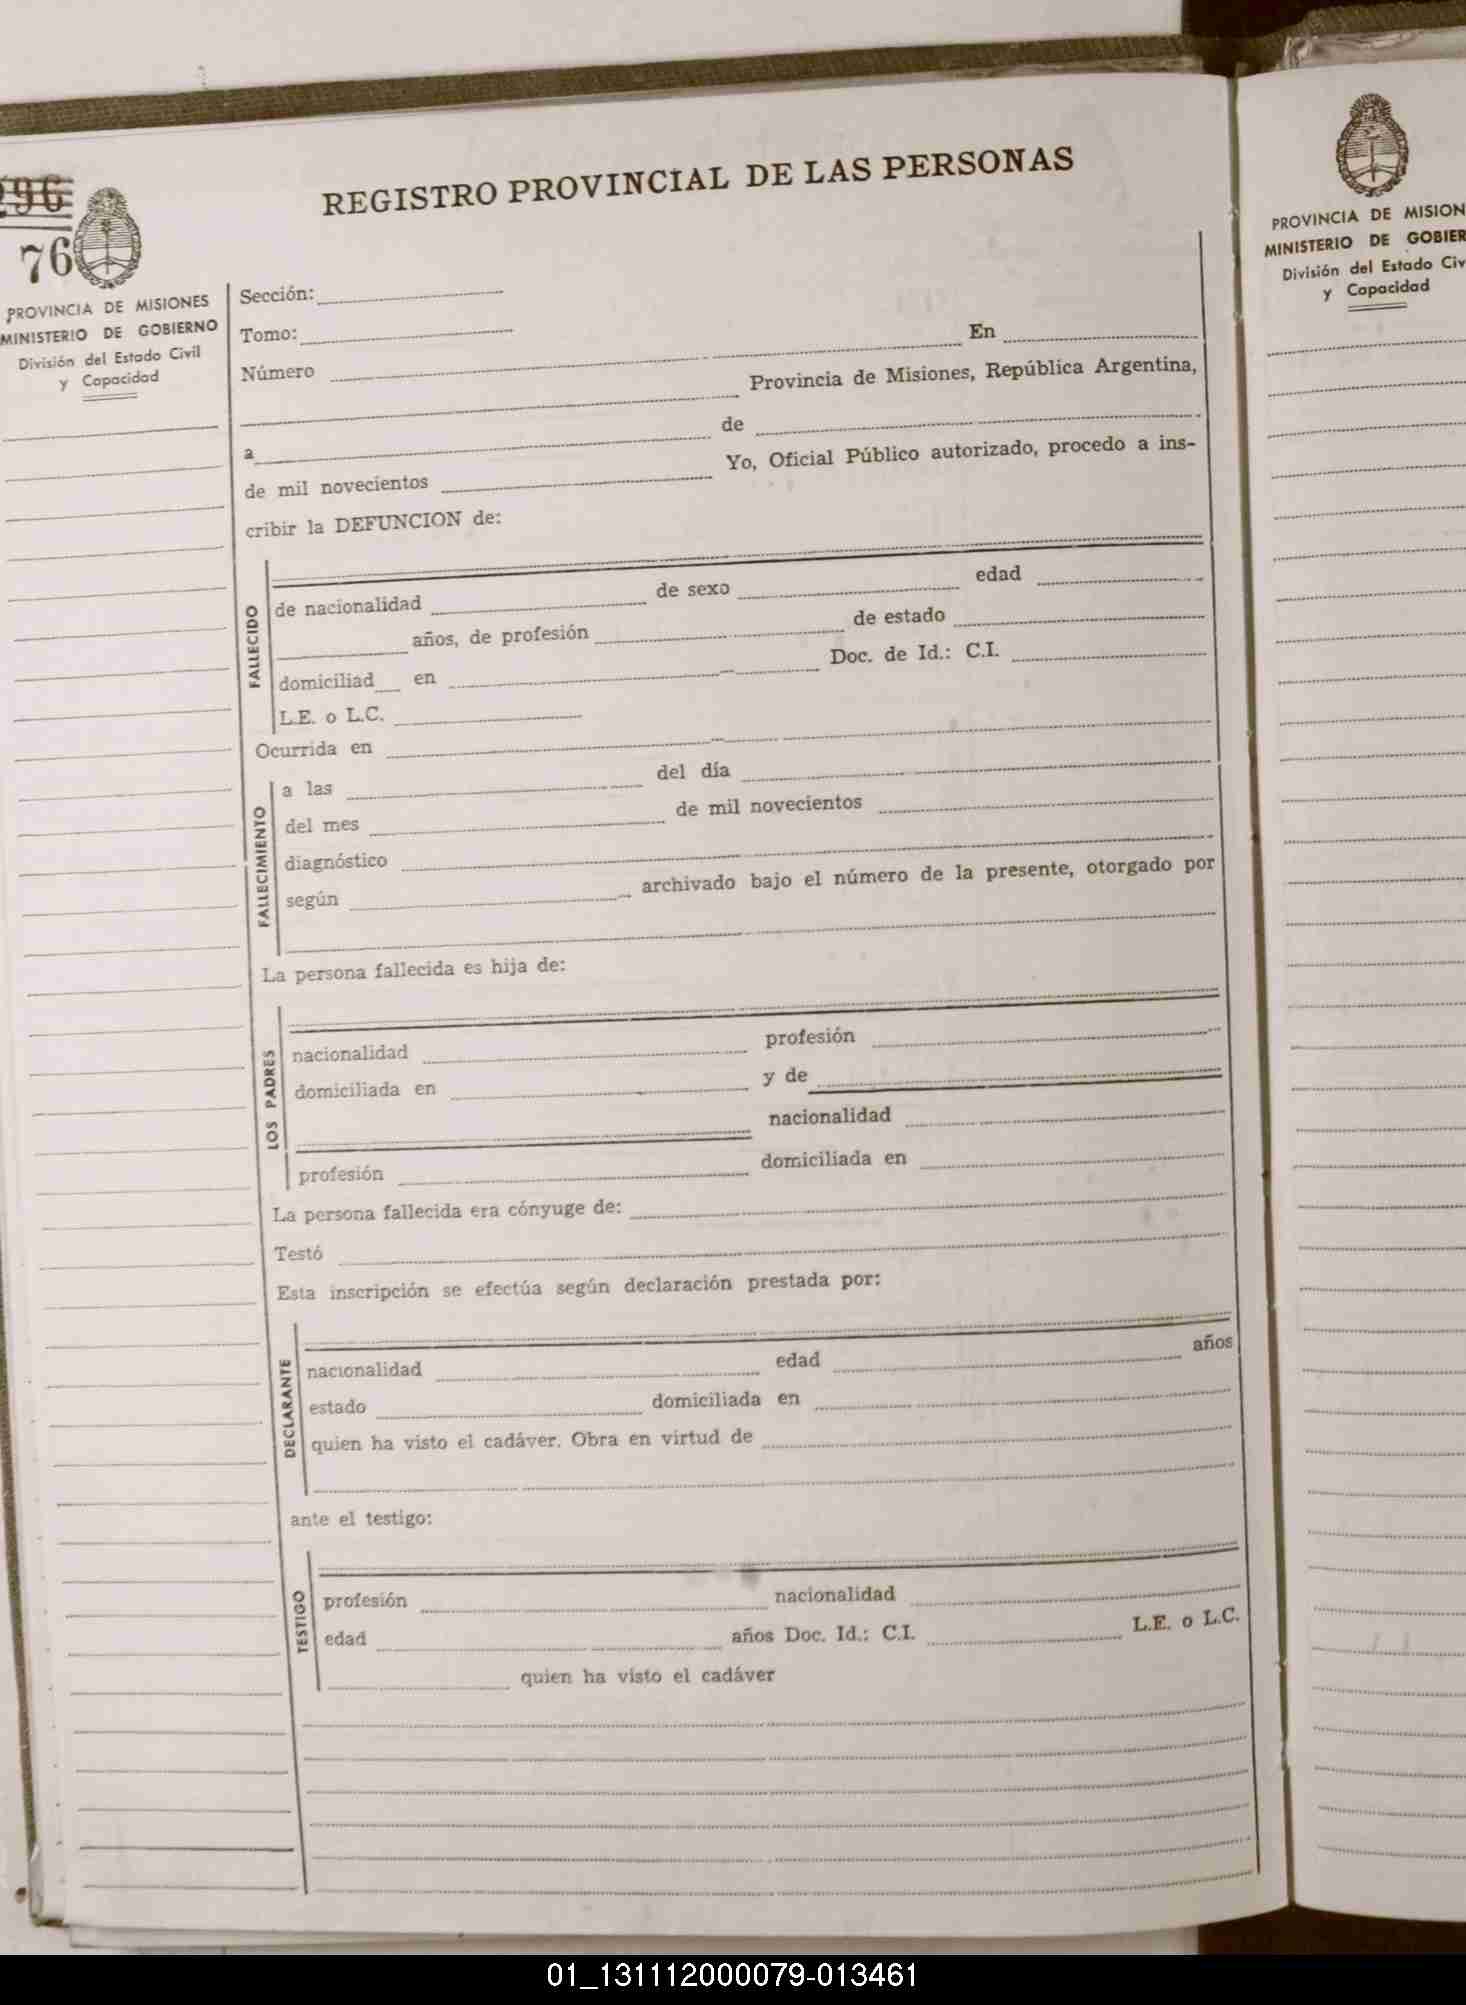 296
76
PROVINCIA DE MISIONES
MINISTERIO DE GOBIERNO
División del Estado Civil
y Capacidad
REGISTRO PROVINCIAL DE LAS PERSONAS
Sección:
Tomo:
Número En
Provincia de Misiones, República Argentina,
a de
de mil novecientos Yo, Oficial Público autorizado, procedo a ins-
cribir la DEFUNCION de:
FALLECIDO
de nacionalidad de sexo edad
años, de profesión de estado
domiciliad en Doc. de Id.: C.I.
L.E. o L.C.
Ocurrida en
FALLECIMIENTO
a las del día
del mes de mil novecientos
diagnóstico
según archivado bajo el número de la presente, otorgado por
La persona fallecida es hija de:
LOS PADRES
nacionalidad profesión
domiciliada en y de
nacionalidad
profesión domiciliada en
La persona fallecida era cónyuge de:
Testó
Esta inscripción se efectúa según declaración prestada por:
DECLARANTE
nacionalidad edad años
estado domiciliada en
quien ha visto el cadáver. Obra en virtud de
ante el testigo:
TESTIGO
profesión nacionalidad
edad años Doc. Id.: C.I. L.E. o L.C.
quien ha visto el cadáver
PROVINCIA DE MISION
MINISTERIO DE GOBIER
División del Estado Civ
y Capacidad
01_131112000079-013461